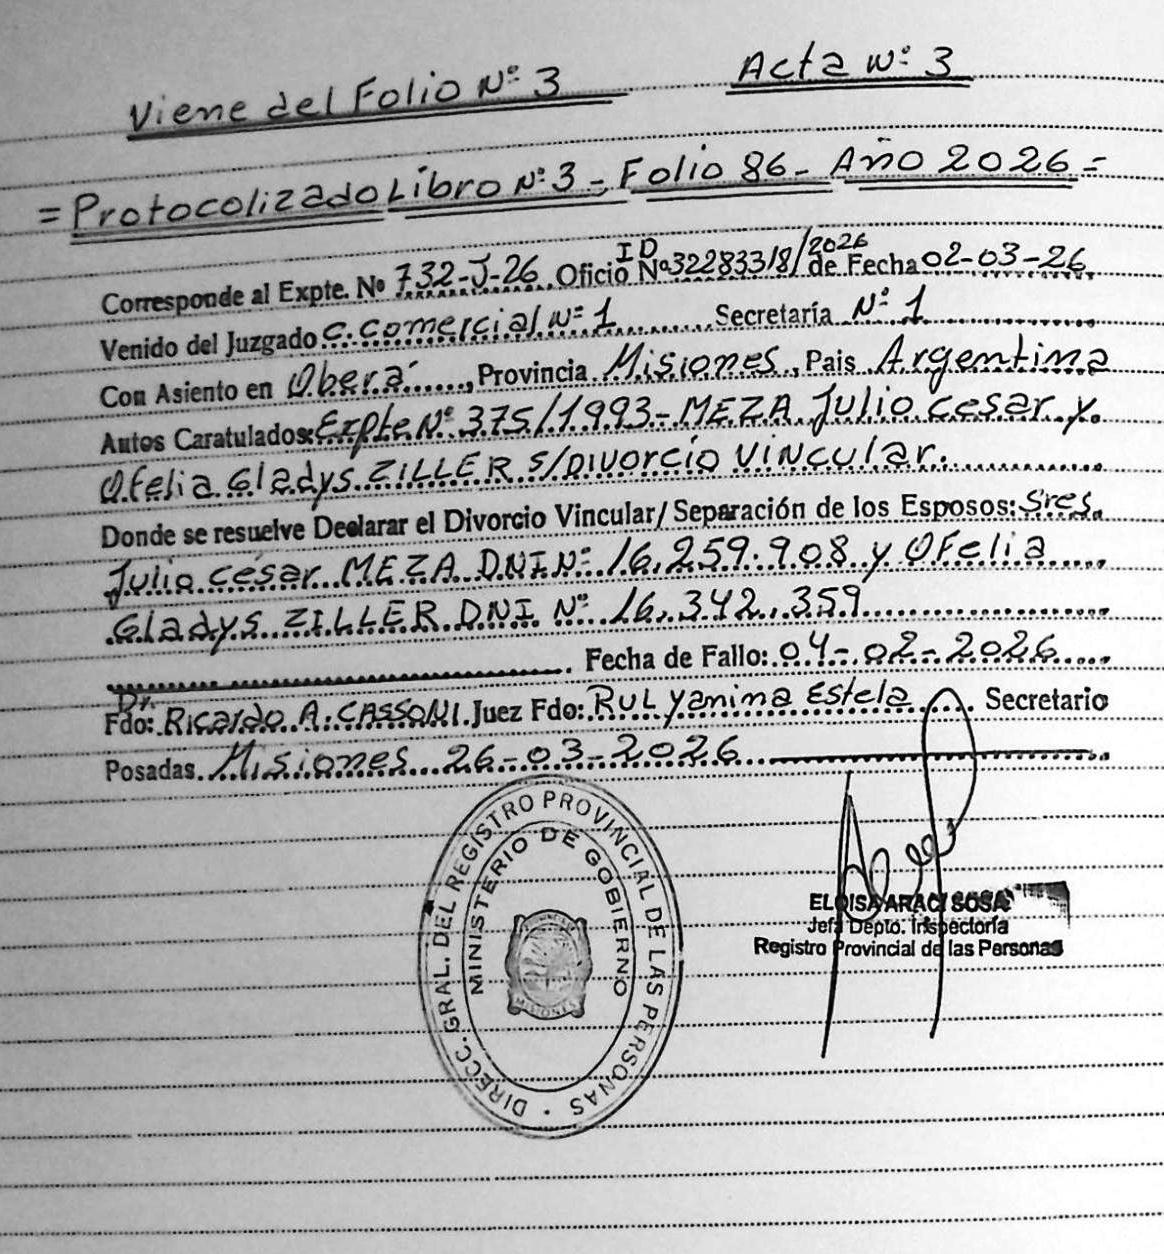 Viene del Folio Nº 3 Acta Nº 3
= Protocolizado Libro Nº 3 - Folio 86 - Año 2026 =
Corresponde al Expte. Nº 732-J-26 Oficio ID Nº 32283318/2026 de Fecha 02-03-26
Venido del Juzgado C. Comercial Nº 1 Secretaría Nº 1
Con Asiento en Oberá, Provincia Misiones, Pais Argentina
Autos Caratulados: Expte Nº 375/1993 - MEZA Julio Cesar y
Ofelia Gladys ZILLER s/Divorcio Vincular.
Donde se resuelve Declarar el Divorcio Vincular/ Separación de los Esposos: Sres.
Julio César MEZA DNI Nº 16.259.908 y Ofelia
Gladys ZILLER DNI Nº 16.342.359
Fecha de Fallo: 04-02-2026
Fdo: Dr. Ricardo A. CASSONI Juez Fdo: RUL Yanina Estela Secretario
Posadas Misiones 26-03-2026
DIRECC. GRAL. DEL REGISTRO PROVINCIAL DE LAS PERSONAS
MINISTERIO DE GOBIERNO
MISIONES
ELOISA ARACI SOSA
Jefa Depto. Inspectoría
Registro Provincial de las Personas